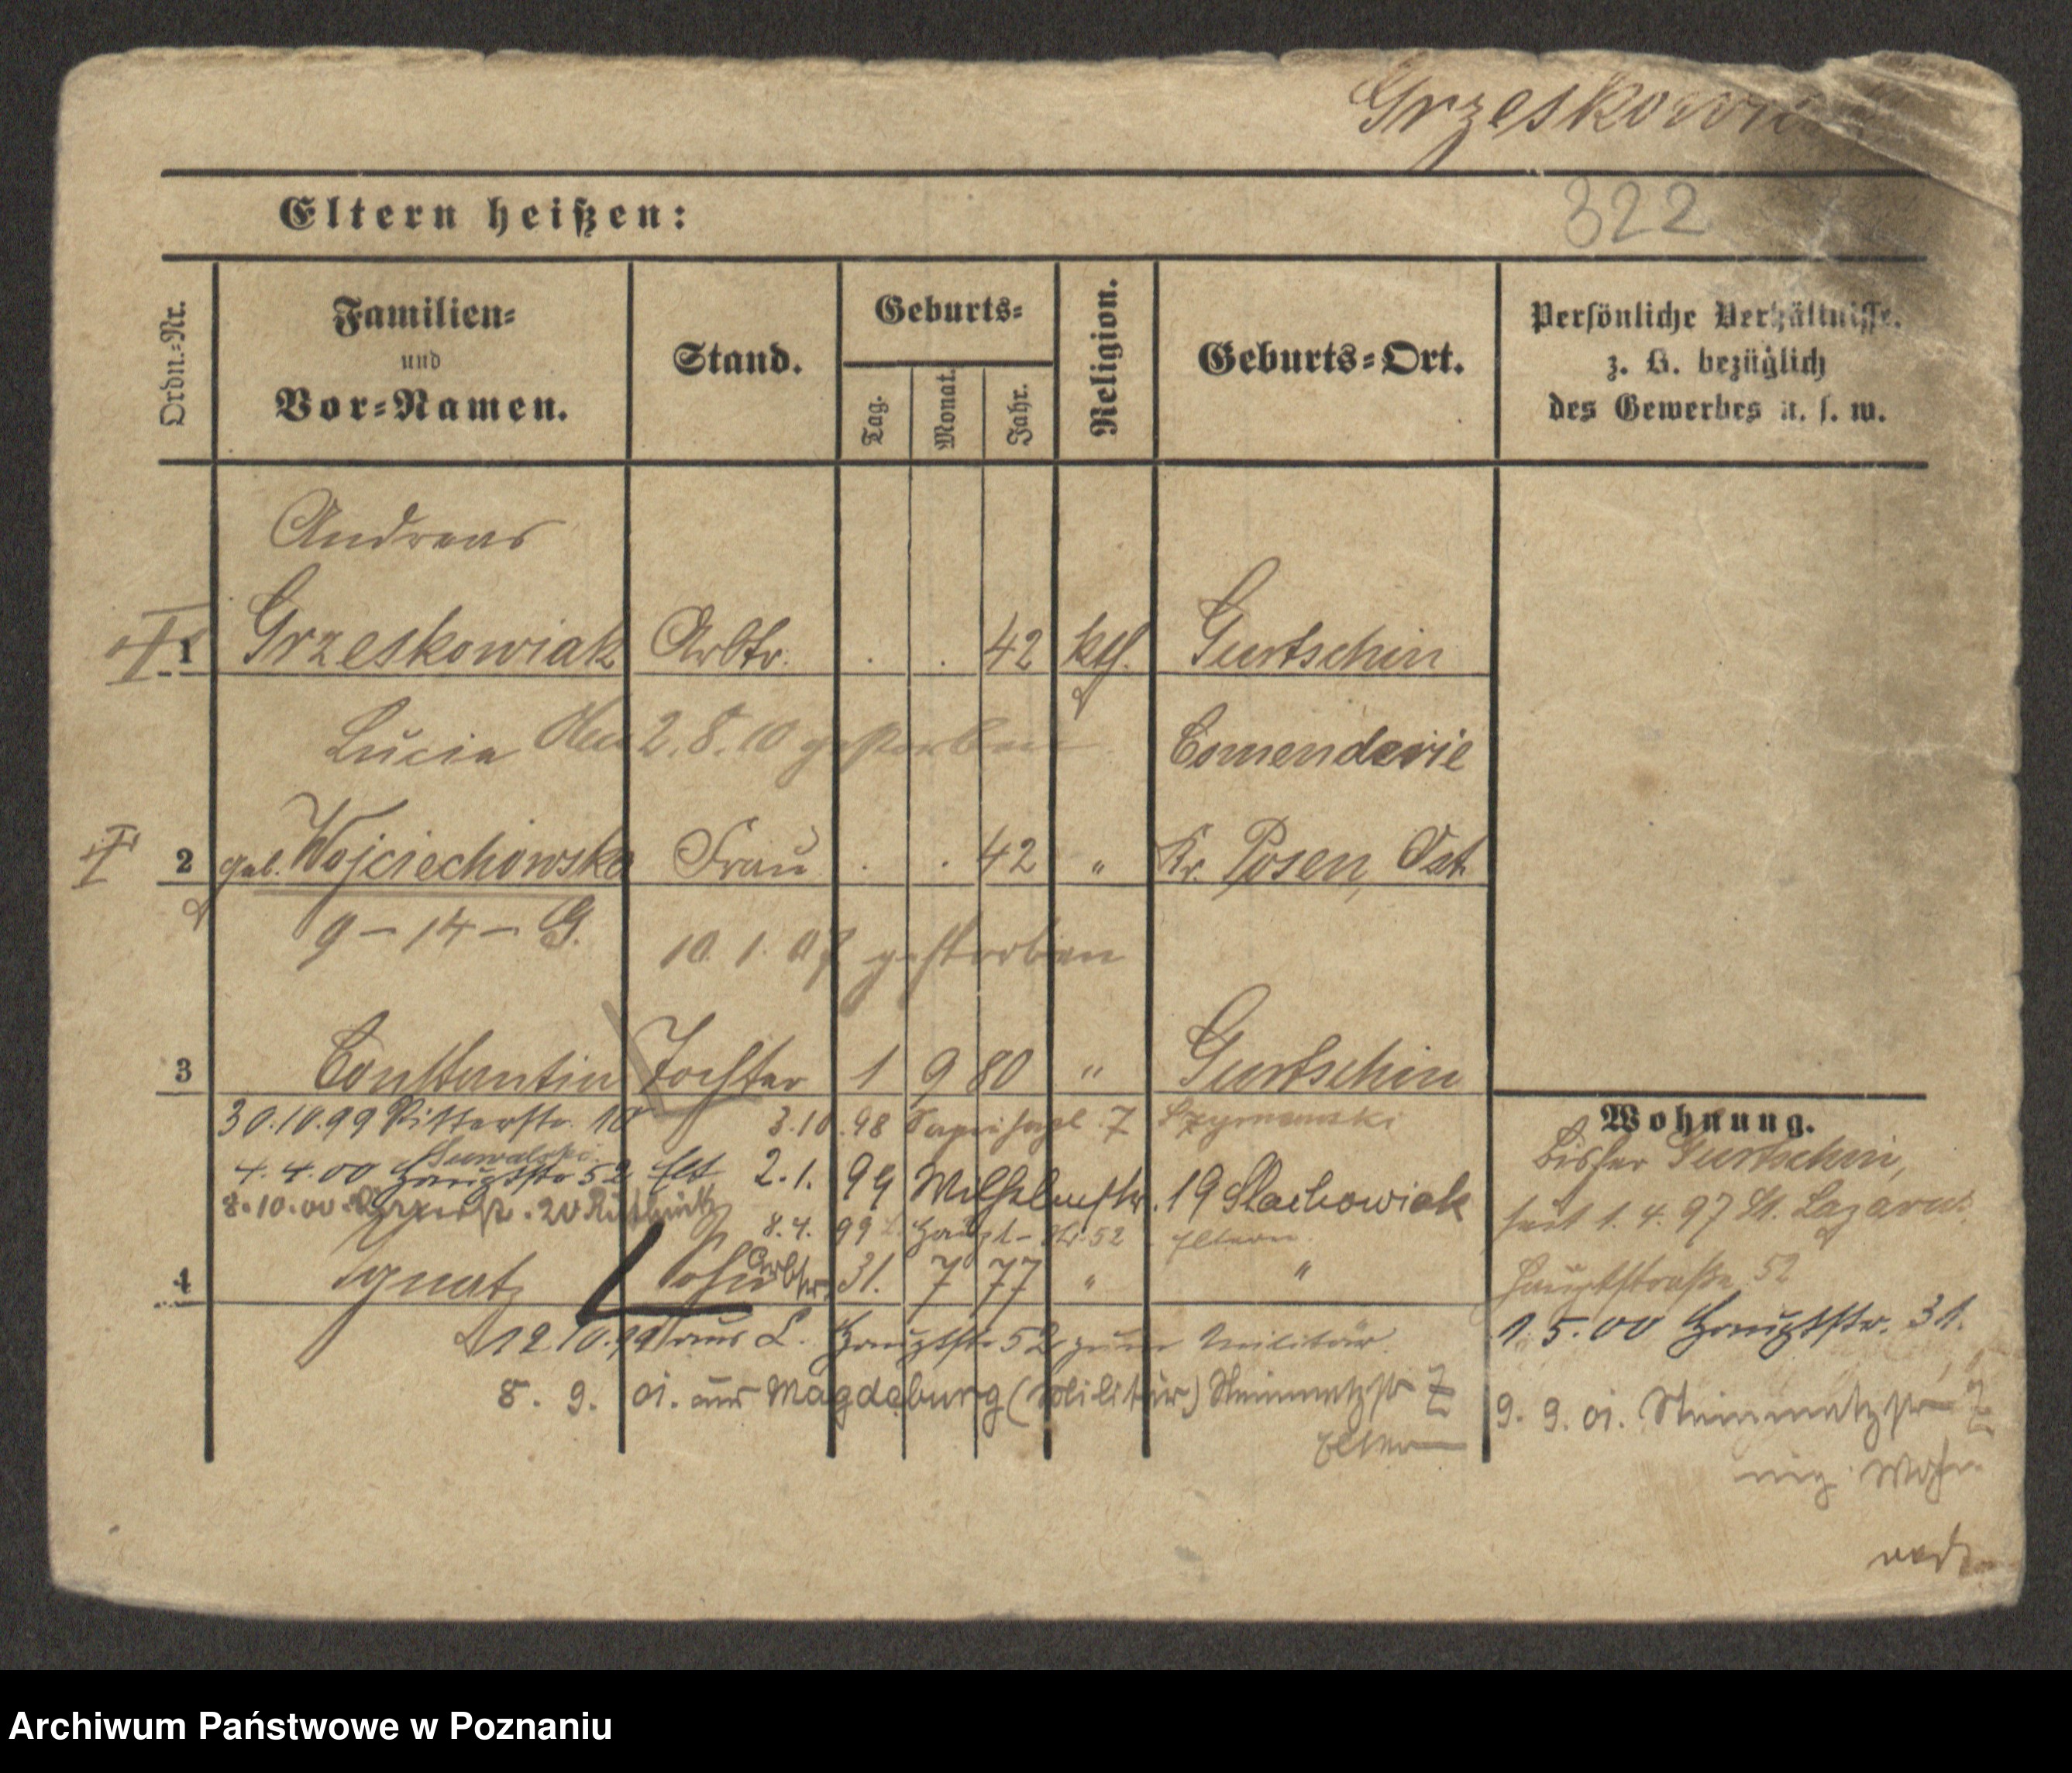 Grzeskowiak
322
Eltern heißen:
Ordn.-Nr.
Familien- und Vor-Namen.
Stand.
Geburts-
Tag.
Monat.
Jahr.
Religion.
Geburts-Ort.
Persönliche Verhältnisse.
z. B. bezüglich
des Gewerbes u. s. w.
Andreas
1 Grzeskowiak Arbtr. . . 42 kth. Gurtschin
Lucia 2.8.10 gestorben Comenderie
2 geb. Wojciechowska Frau . . 42 " Kr. Posen, Ost
9-14-G.
10.1.07 gestorben
3 Constantin Tochter 1 9 80 " Gurtschin
30.10.99 Ritterstr. 10 3.10.98 7 Szymanski
4.4.00 Hauptstr 52 Elt 2.1.99 Wilhelmstr. 19 Stachowiak
8.10.00 20
8.4.99 Haupt-Str. 52 Eltern
4 Ignatz Sohn Arbtr. 31. 7 77 " "
12.10.99 aus L. Hauptstr 52 zum Militär.
8. 9. 01. aus Magdeburg (Militär) Steinmetzstr 7
Eltern
Wohnung.
bisher Gurtschin,
seit 1.4.97 St. Lazarus
Hauptstraße 52
1.5.00 Hauptstr. 31.
9. 9. 01. Steinmetzstr 7
Archiwum Państwowe w Poznaniu